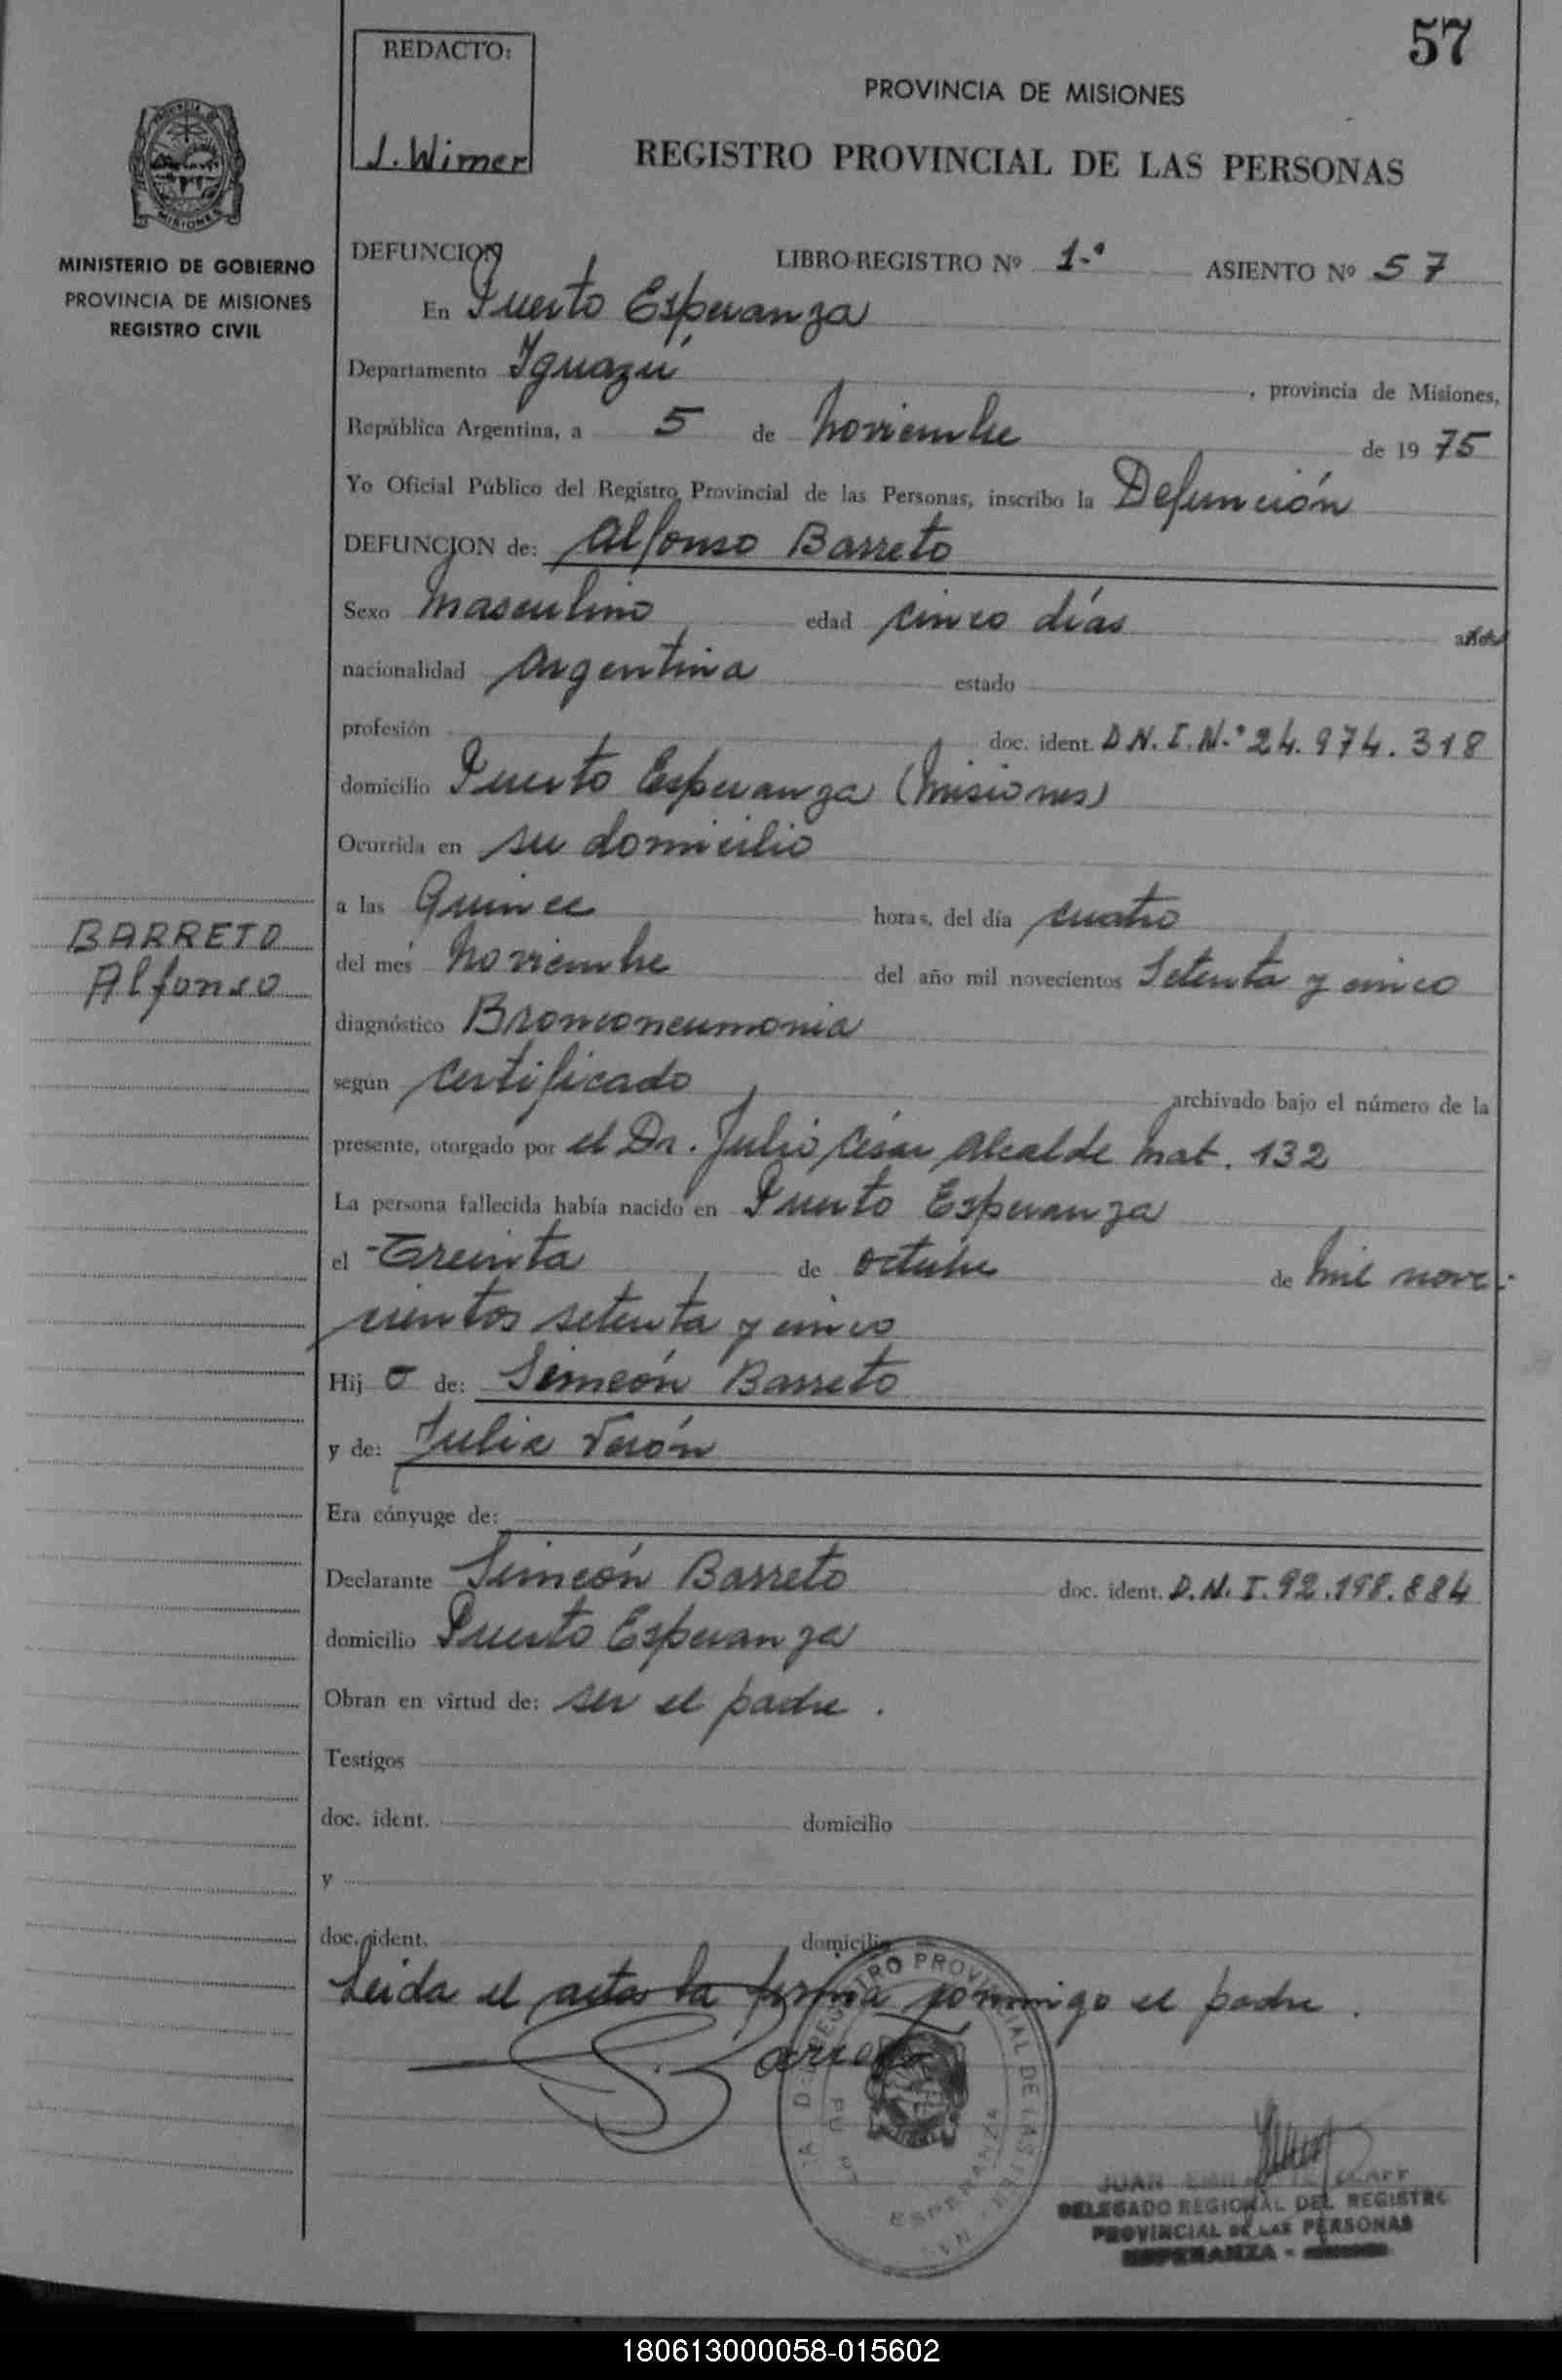 57
REDACTO:
J. Wimer
PROVINCIA DE MISIONES
REGISTRO PROVINCIAL DE LAS PERSONAS
MISIONES
MINISTERIO DE GOBIERNO
PROVINCIA DE MISIONES
REGISTRO CIVIL
DEFUNCION LIBRO-REGISTRO Nº 1.º ASIENTO Nº 57
En Puerto Esperanza
Departamento Iguazú, provincia de Misiones,
República Argentina, a 5 de Noviembre de 1975
Yo Oficial Público del Registro Provincial de las Personas, inscribo la Defunción
DEFUNCION de: Alfonso Barreto
Sexo masculino edad cinco días años
nacionalidad Argentina estado
profesión doc. ident. D.N.I.N.º 24.974.318
domicilio Puerto Esperanza (Misiones)
Ocurrida en su domicilio
a las Quince horas, del día cuatro
BARRETO
Alfonso
del mes Noviembre del año mil novecientos Setenta y cinco
diagnóstico Bronconeumonia
según certificado archivado bajo el número de la
presente, otorgado por el Dr. Julio César Alcalde Mat. 132
La persona fallecida había nacido en Puerto Esperanza
el Treinta de octubre de mil nove-
cientos setenta y cinco
Hij o de: Simeón Barreto
y de: Julia Verón
Era cónyuge de:
Declarante Simeón Barreto doc. ident. D.N.I. 92.198.884
domicilio Puerto Esperanza
Obran en virtud de: ser el padre.
Testigos
doc. ident. domicilio
y
doc. ident. domicilio
Leida el acta la firma conmigo el padre.
S. Barreto
REGISTRO PROVINCIAL DE LAS
ESPERANZA
JUAN
DELEGADO REGIONAL DEL REGISTRO
PROVINCIAL DE LAS PERSONAS
ESPERANZA -
180613000058-015602